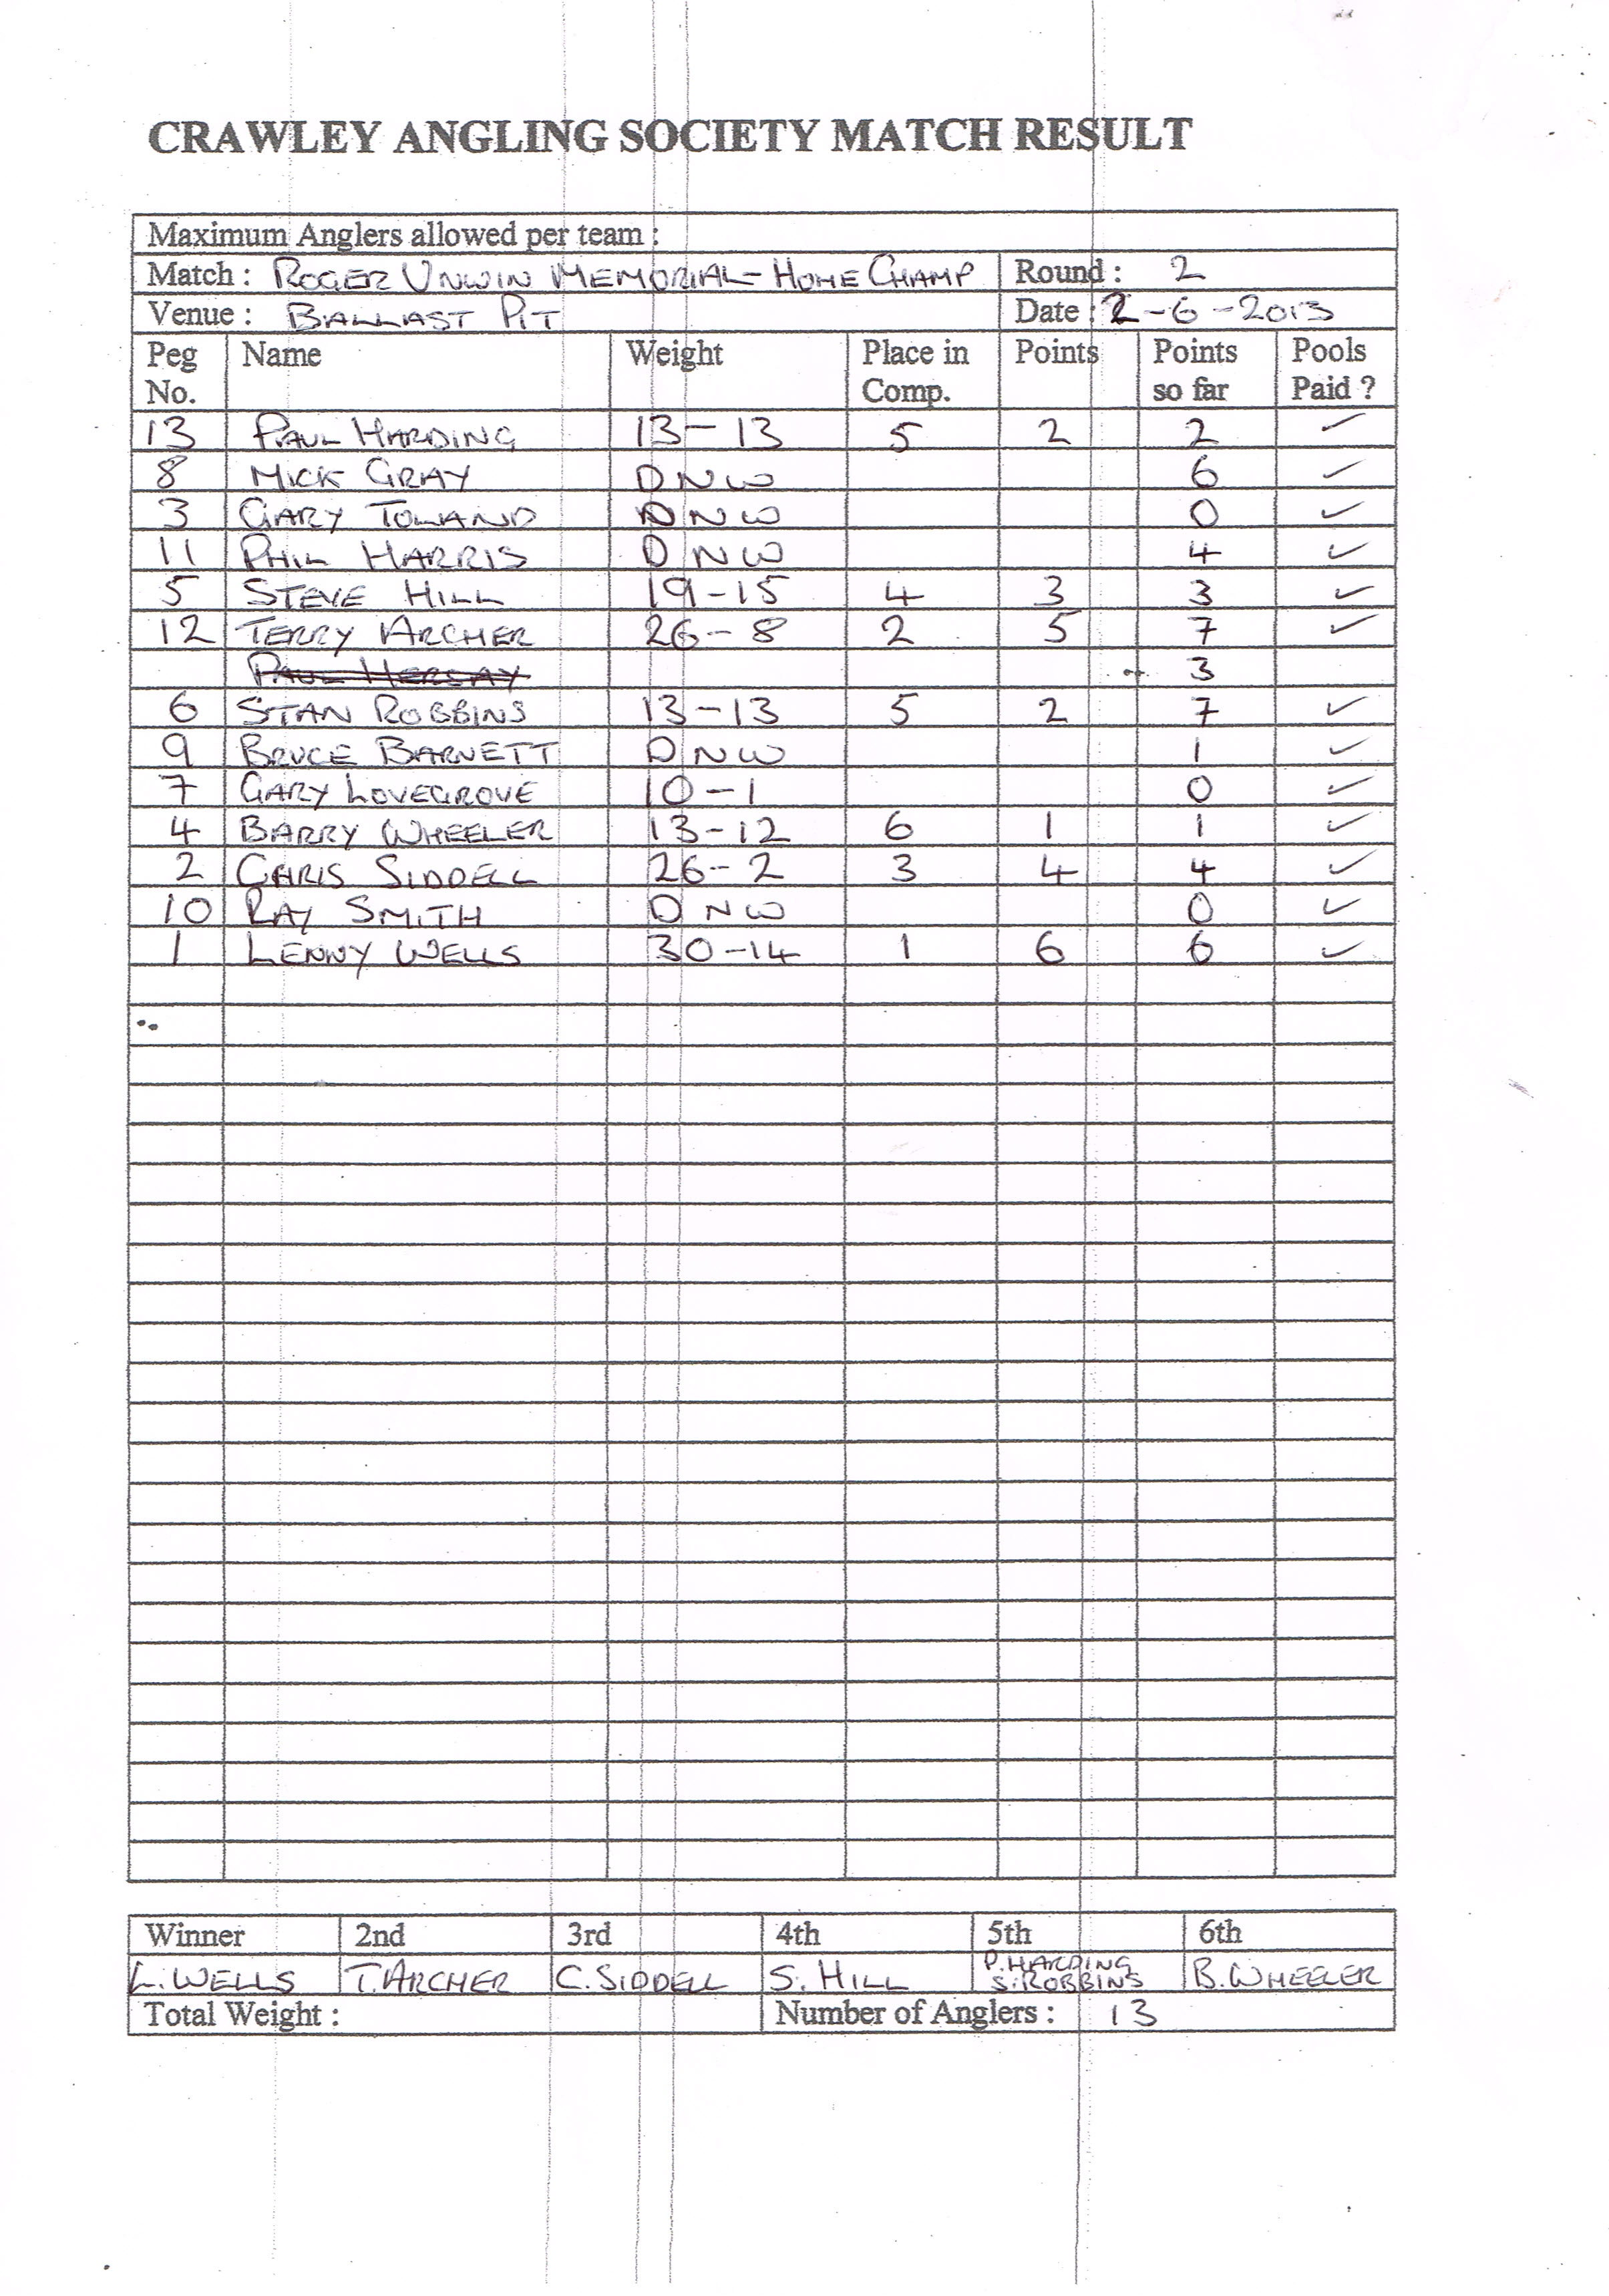 CRAWLEY ANGLING SOCIETY MATCH RESULT
Maximum Anglers allowed per team :
Match : ROGER UNWIN MEMORIAL - HOME CHAMP Round : 2
Venue : BALLAST PIT Date : 2-6-2013
Peg No. Name Weight Place in Comp. Points Points so far Pools Paid ?
13 PAUL HARDING 13-13 5 2 2 ✓
8 MICK GRAY DNW 6 ✓
3 GARY TOWAND DNW 0 ✓
11 PHIL HARRIS DNW 4 ✓
5 STEVE HILL 19-15 4 3 3 ✓
12 TERRY ARCHER 26-8 2 5 7 ✓
PAUL HERSAY 3
6 STAN ROBBINS 13-13 5 2 7 ✓
9 BRUCE BARNETT DNW 1 ✓
7 GARY LOVEGROVE 10-1 0 ✓
4 BARRY WHEELER 13-12 6 1 1 ✓
2 CHRIS SIDDELL 26-2 3 4 4 ✓
10 RAY SMITH DNW 0 ✓
1 LENNY WELLS 30-14 1 6 6 ✓
Winner 2nd 3rd 4th 5th 6th
L. WELLS T. ARCHER C. SIDDELL S. HILL P. HARDING S. ROBBINS B. WHEELER
Total Weight : Number of Anglers : 13